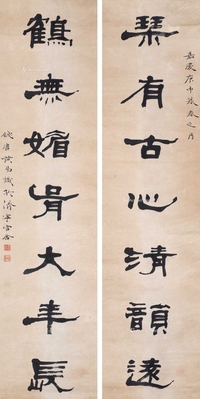 嘉慶庚申春之月
琹有古心清韻遠
鶴無媚骨大年長
錢唐黃易識於濟寧官舍